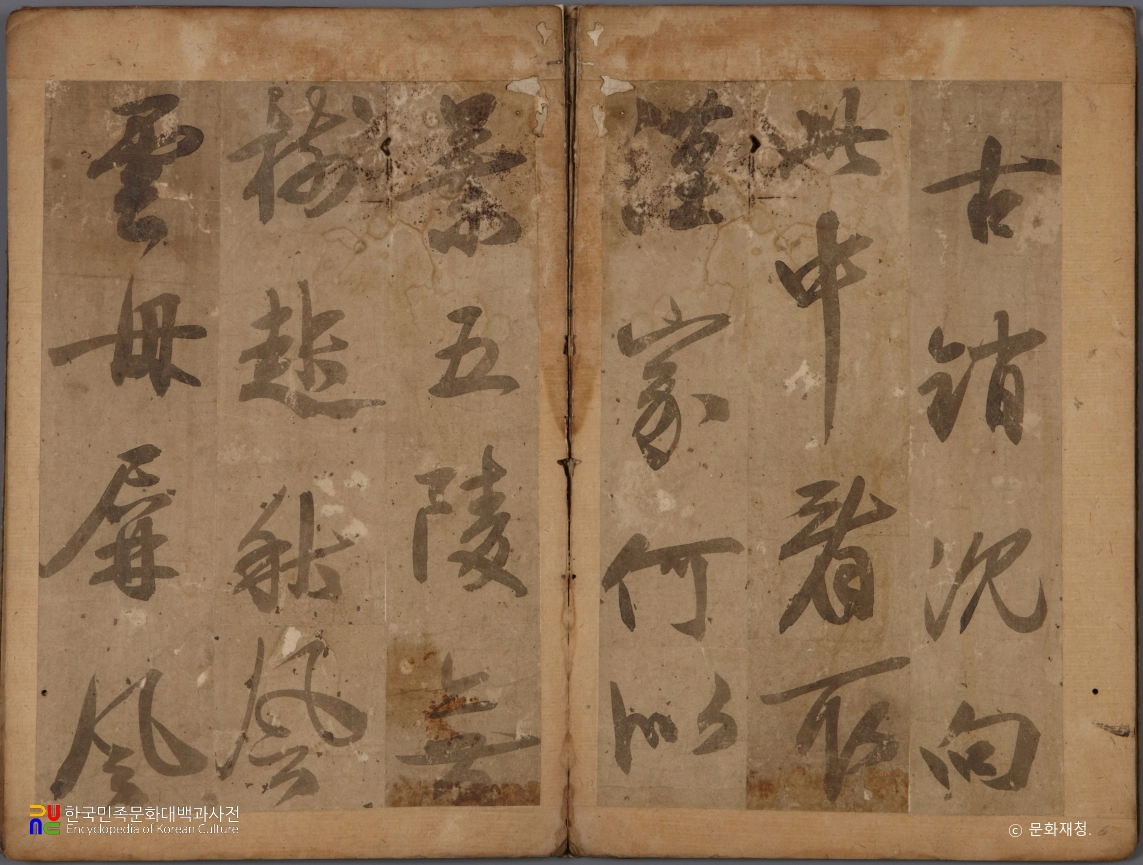 古銷沈向
此中看取
漢家何似
業五陵無
樹起秋風
雲母屏風
한국민족문화대백과사전
Encyclopedia of Korean Culture
ⓒ 문화재청.